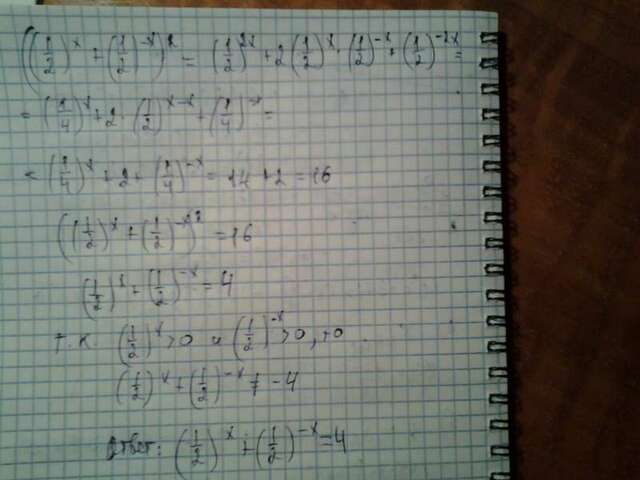 ((1/2)^x + (1/2)^-x)^2 = (1/2)^2x + 2(1/2)^x · (1/2)^-x + (1/2)^-2x =
= (1/4)^x + 2 · (1/2)^x-x + (1/4)^-x =
= (1/4)^x + 2 + (1/4)^-x = 14 + 2 = 16
((1/2)^x + (1/2)^-x)^2 = 16
(1/2)^x + (1/2)^-x = 4
т.к. (1/2)^x > 0 и (1/2)^-x > 0, то
(1/2)^x + (1/2)^-x ≠ -4
Ответ: (1/2)^x + (1/2)^-x = 4